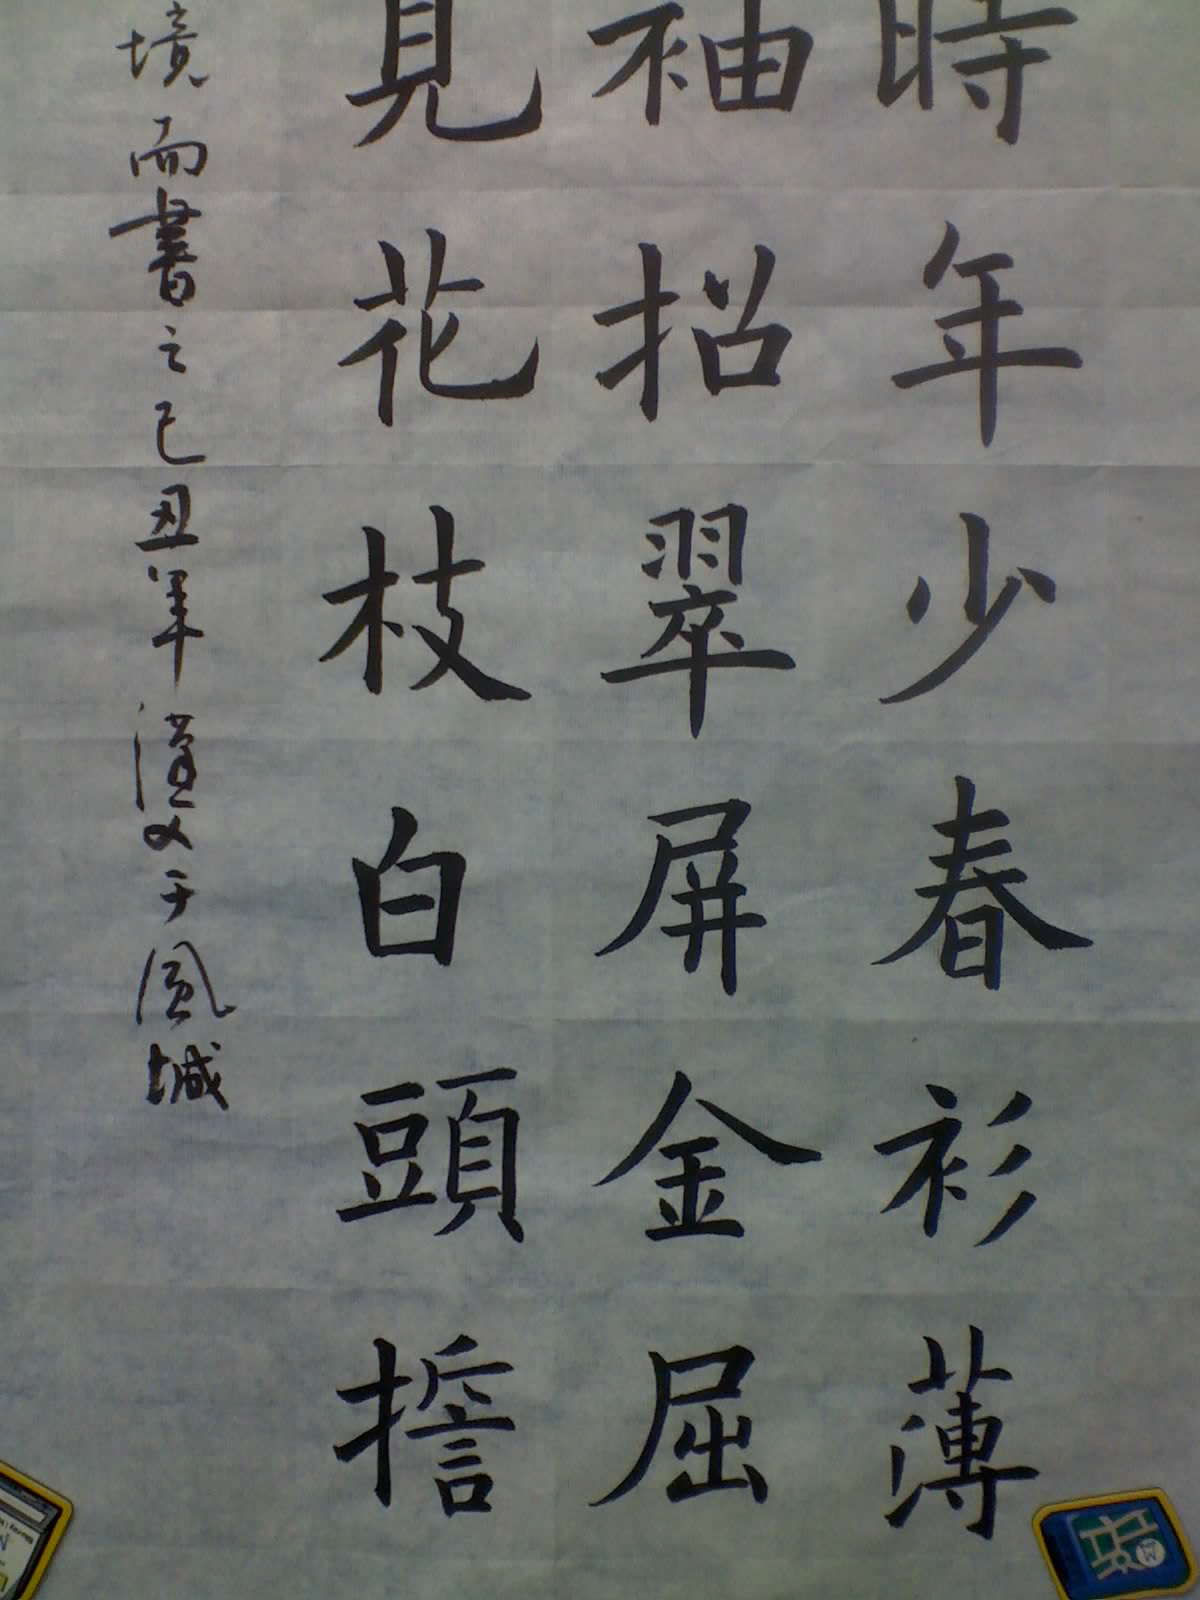 時年少春衫薄
袖招翠屏金屈
見花枝白頭擔
境而書之己丑年漢文于鳳城